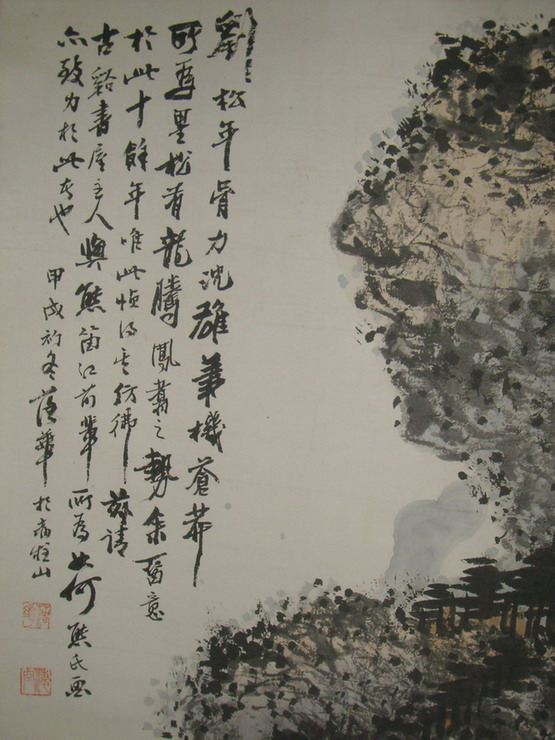 劉松年骨力沈雄筆機蒼莽
所畫墨松有龍騰鳳翥之勢余留意
於此十餘年唯此幀得其彷彿茲請
古谿書屋主人與熊笛江前輩所為如何熊氏画
亦致力於此者也
甲戌初冬蔭華於病牀山